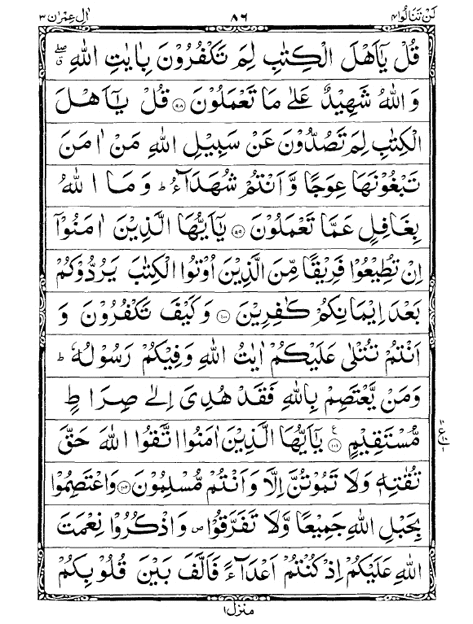 لَنْ تَنَالُوا ٤ ٨٦ اٰل عِمْرٰن ٣
قُلْ يٰۤاَهْلَ الْكِتٰبِ لِمَ تَكْفُرُوْنَ بِاٰيٰتِ اللّٰهِ ۖق
وَاللّٰهُ شَهِيْدٌ عَلٰى مَا تَعْمَلُوْنَ ﴿۹۸﴾ قُلْ يٰۤاَهْلَ
الْكِتٰبِ لِمَ تَصُدُّوْنَ عَنْ سَبِيْلِ اللّٰهِ مَنْ اٰمَنَ
تَبْغُوْنَهَا عِوَجًا وَّاَنْتُمْ شُهَدَآءُ ؕ وَمَا اللّٰهُ
بِغَافِلٍ عَمَّا تَعْمَلُوْنَ ﴿۹۹﴾ يٰۤاَيُّهَا الَّذِيْنَ اٰمَنُوْۤا
اِنْ تُطِيْعُوْا فَرِيْقًا مِّنَ الَّذِيْنَ اُوْتُوا الْكِتٰبَ يَرُدُّوْكُمْ
بَعْدَ اِيْمَانِكُمْ كٰفِرِيْنَ ﴿۱۰۰﴾ وَكَيْفَ تَكْفُرُوْنَ وَ
اَنْتُمْ تُتْلٰى عَلَيْكُمْ اٰيٰتُ اللّٰهِ وَفِيْكُمْ رَسُوْلُهٗ ؕ
وَمَنْ يَّعْتَصِمْ بِاللّٰهِ فَقَدْ هُدِىَ اِلٰى صِرَاطٍ
مُّسْتَقِيْمٍ ﴿۱۰۱﴾ يٰۤاَيُّهَا الَّذِيْنَ اٰمَنُوا اتَّقُوا اللّٰهَ حَقَّ
تُقٰتِهٖ وَلَا تَمُوْتُنَّ اِلَّا وَاَنْتُمْ مُّسْلِمُوْنَ ﴿۱۰۲﴾ وَاعْتَصِمُوْا
بِحَبْلِ اللّٰهِ جَمِيْعًا وَّلَا تَفَرَّقُوْا ص وَاذْكُرُوْا نِعْمَتَ
اللّٰهِ عَلَيْكُمْ اِذْ كُنْتُمْ اَعْدَآءً فَاَلَّفَ بَيْنَ قُلُوْبِكُمْ
منزل ١